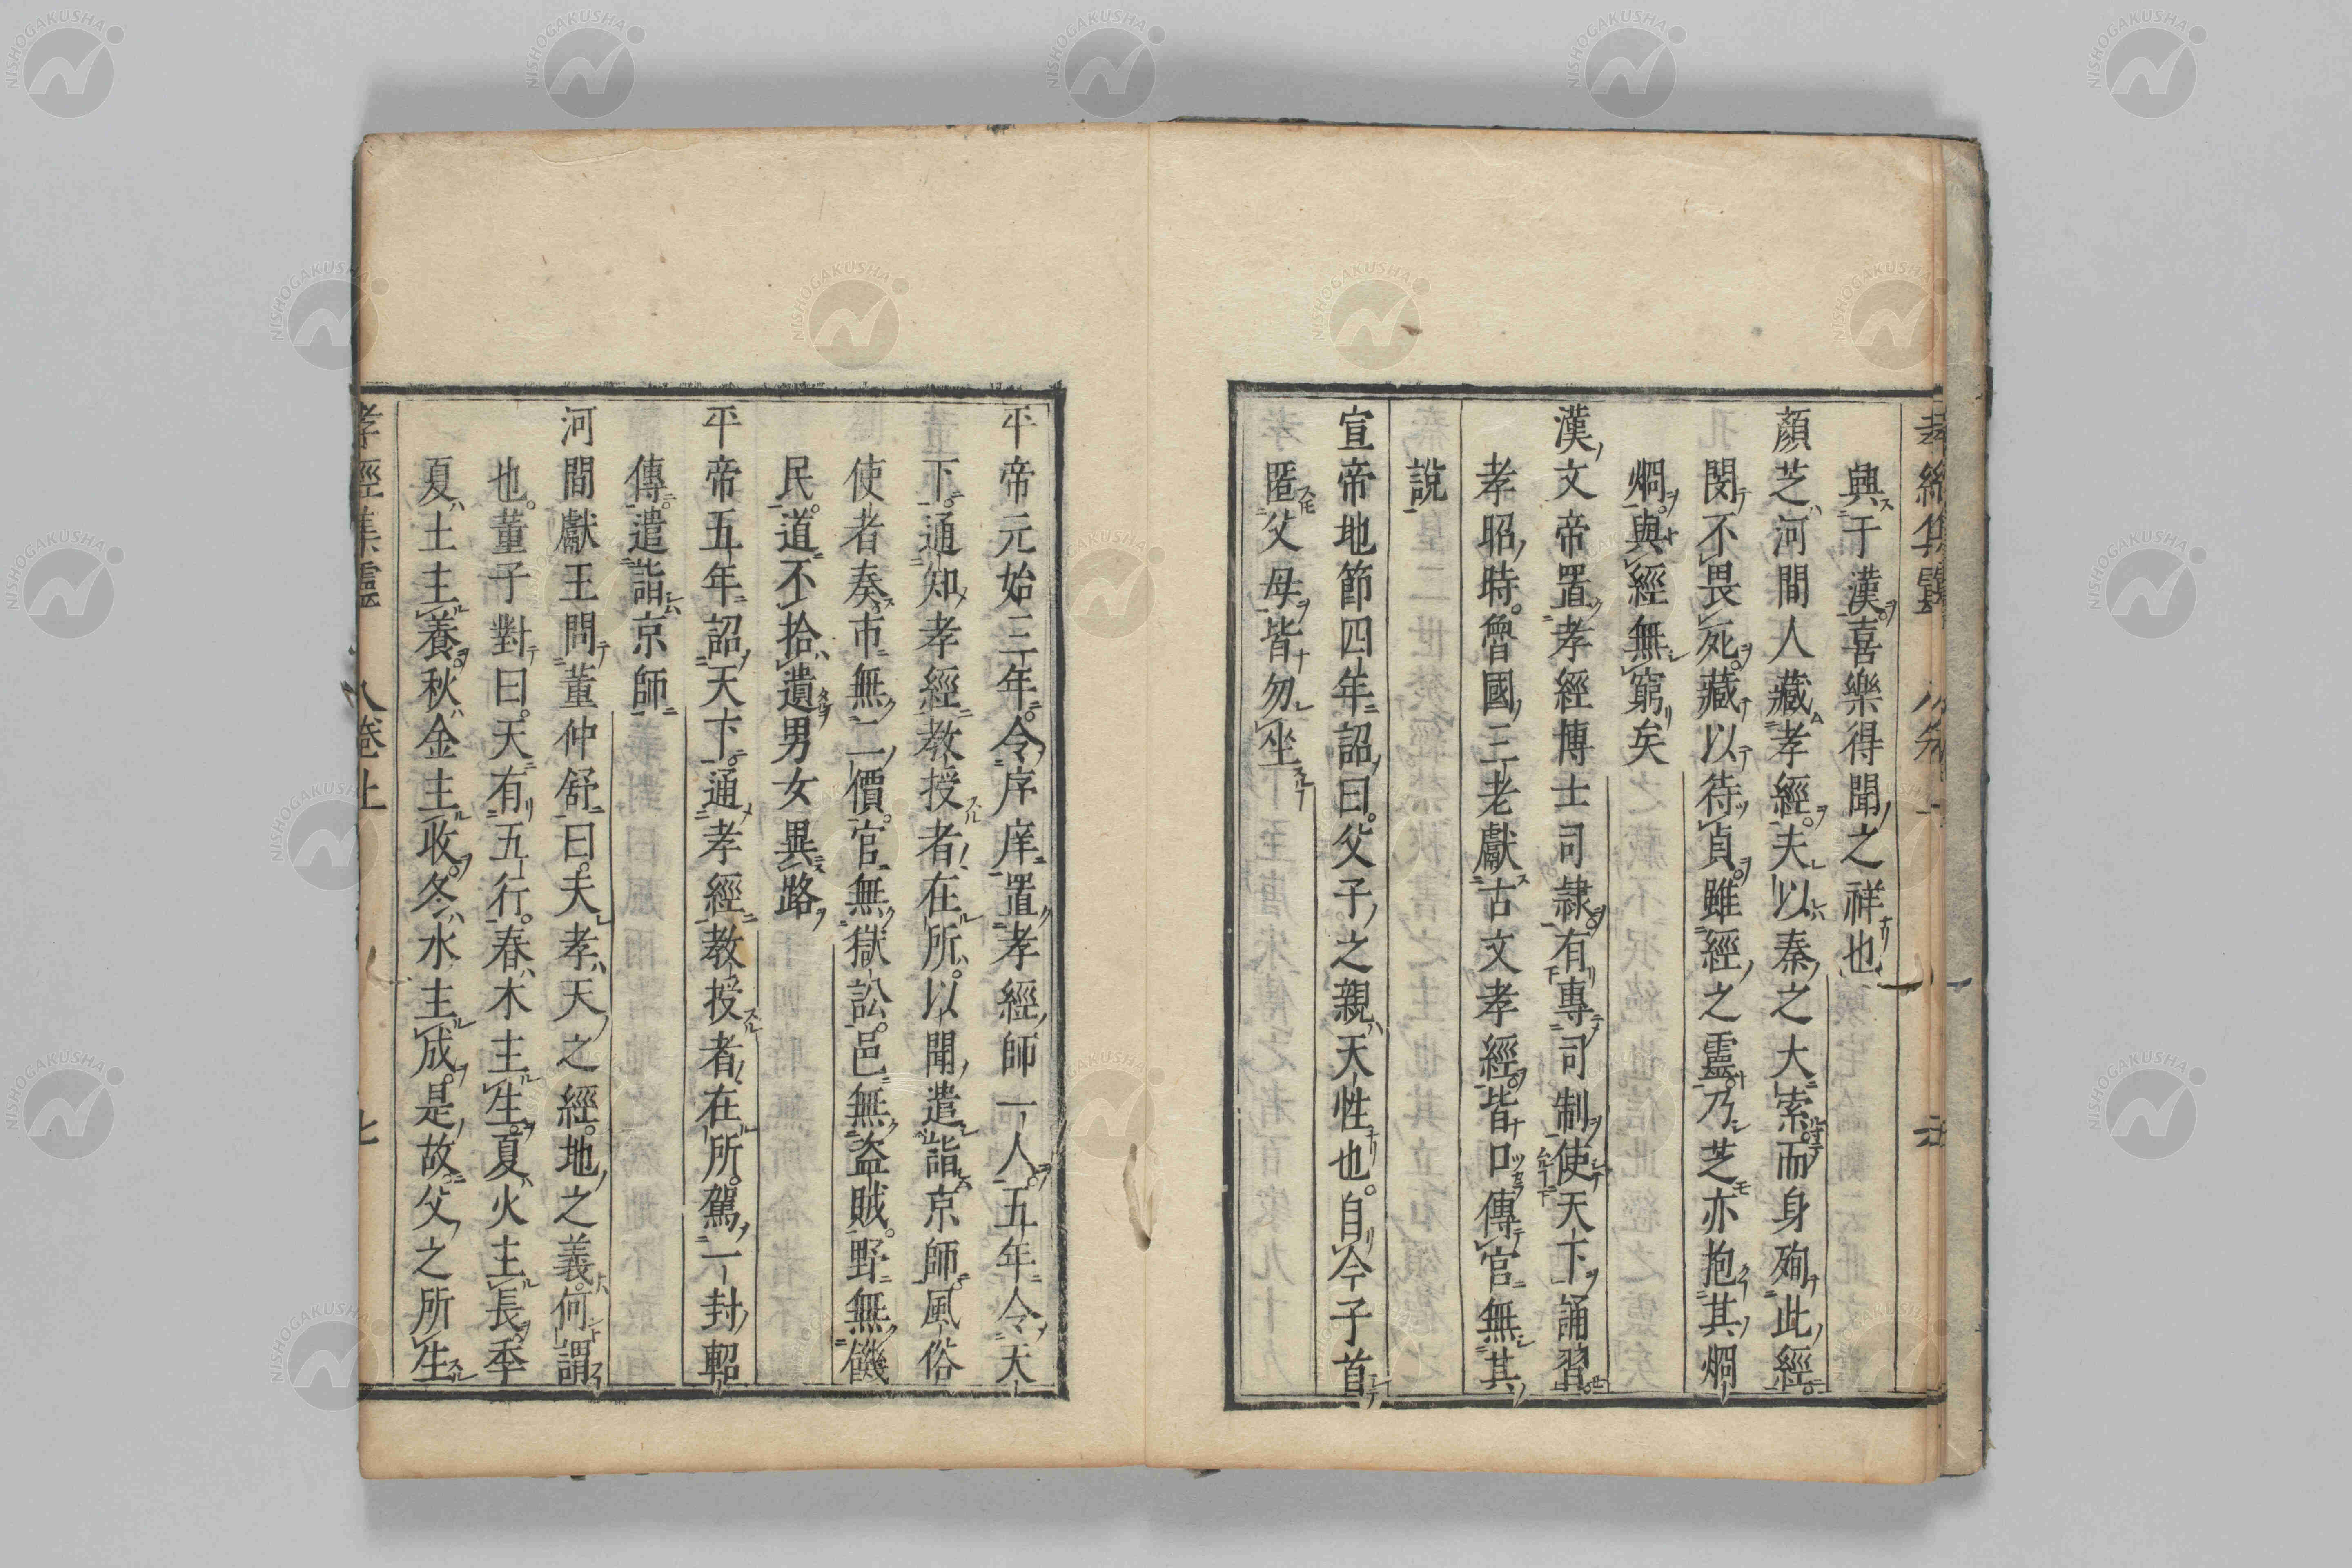 興于漢喜樂得聞之祥也
顏芝河間人藏孝經夫以秦之大索而身殉此經
閔不畏死藏以待貞雖經之靈乃芝亦抱其烱
烱與經無窮矣
漢文帝置孝經博士司隷有專司制使天下誦習
孝昭時魯國三老獻古文孝經皆口傳官無其
說
宣帝地節四年詔曰父子之親天性也自今子首
匿父母皆勿坐
平帝元始三年令序庠置孝經師一人五年令天
下通知孝經教授者在所以聞遣詣京師風俗
使者奏市無二價官無獄訟邑無盗賊野無饑
民道不拾遺男女異路
平帝五年詔天下通孝經教授者在所駕一封軺
傳遣詣京師
河間獻王問董仲舒曰夫孝天之經地之義何謂
也董子對曰天有五行春木主生夏火主長季
夏土主養秋金主收冬水主成是故父之所生
孝經集靈 卷上 七
NISHOGAKUSHA